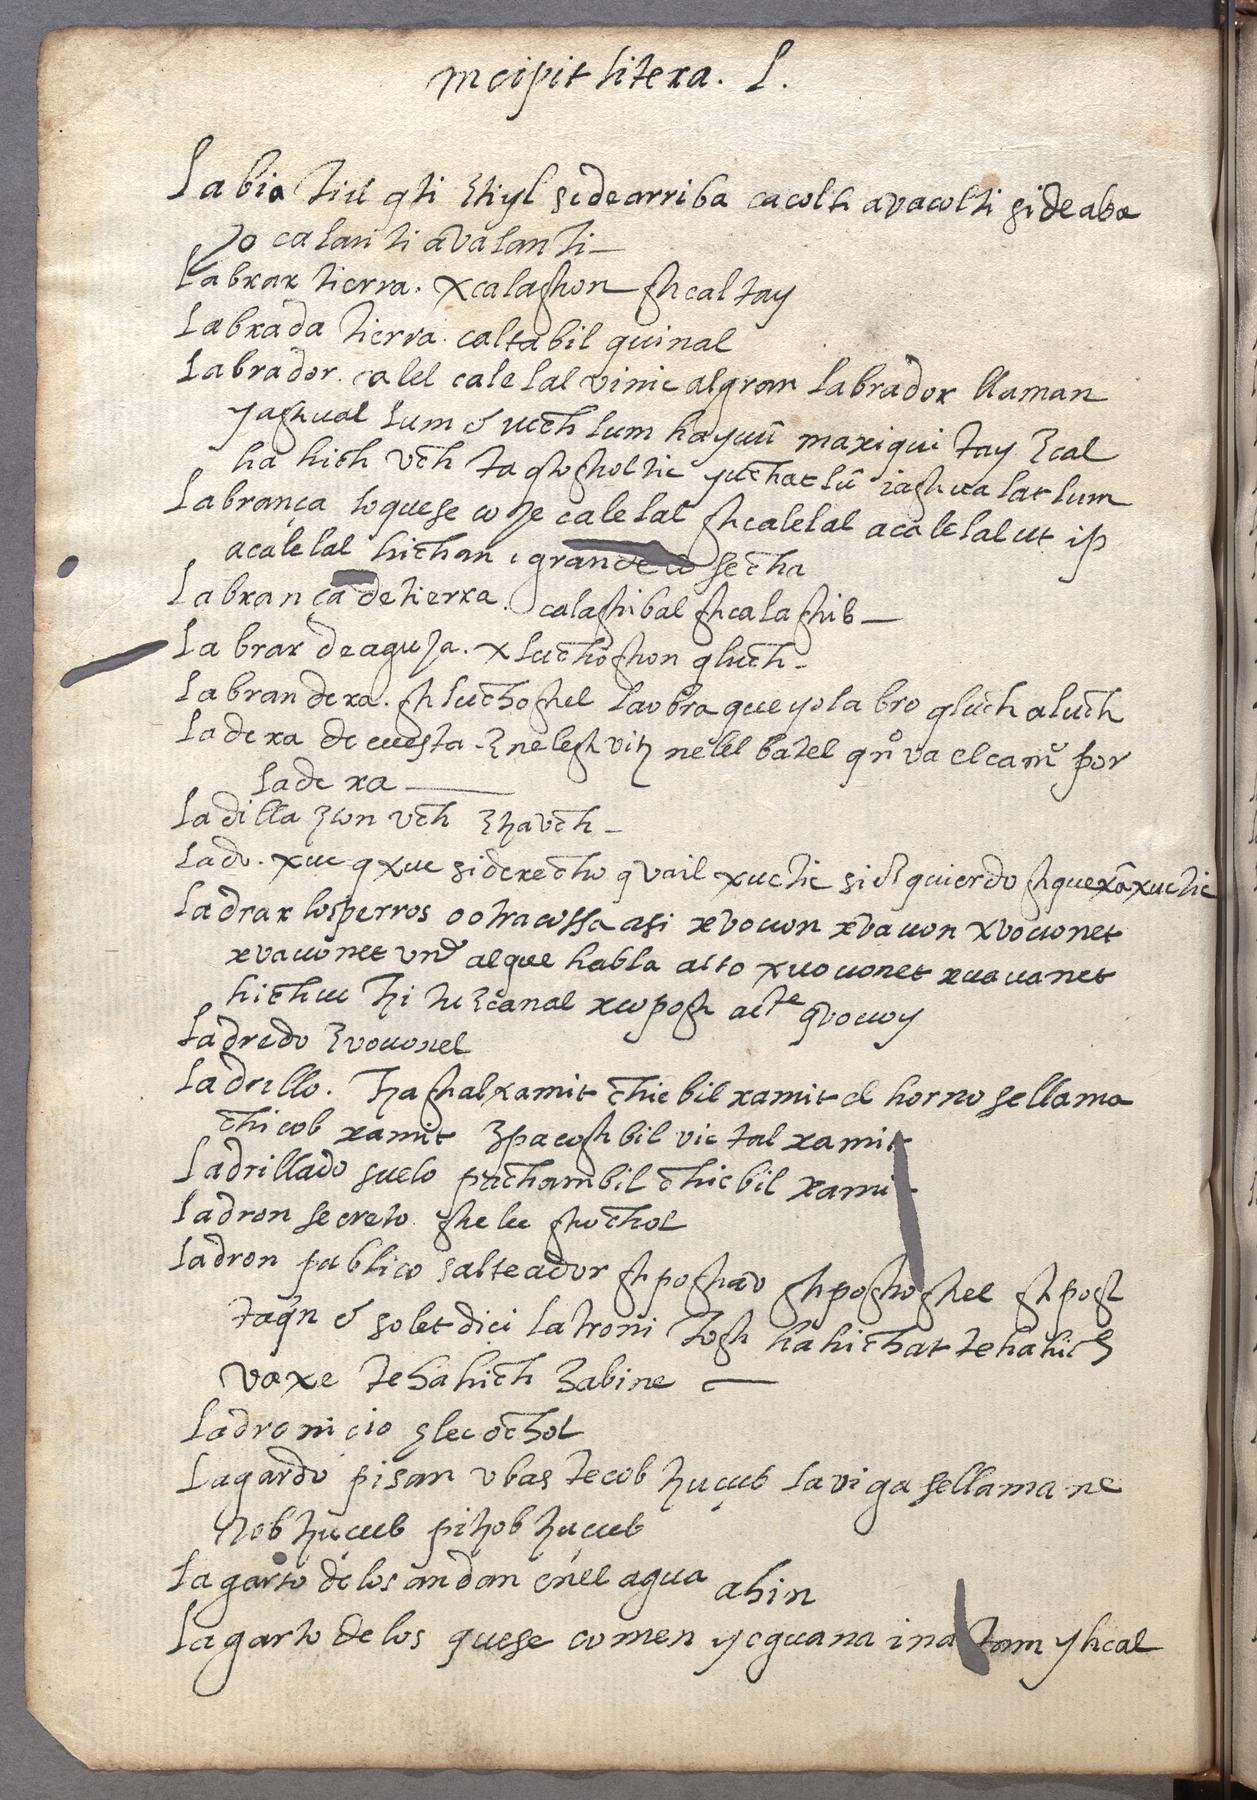 incipit litera. L.
Labio tiil qti ztiyl si de arriba cacolti avacolti si de aba
Jo calanti avalanti
Labrar tierra. xcalaghon ghcaltay
Labrada tierra. caltabil quinal
Labrador. calel calelal vinic al gran labrador llaman
yaghual lum & uch lum hayuu maxiqui tay zcal
ha hich vch ta qtogholtic yuchat lu iaghualat lum
Labrança lo que se coJe calelal ghcalelal acalelal ut ip
acalelal hichan i grande co secha
Labrança de tierra. calaghibal ghcalaghib
Labrar de aguJa. xluchoghon qluch
Labrandera. ghluchoghel la obra que yo labro qluch aluch
Ladera de cuesta. znelegh vitz nelel batel qno va el cam° por
ladera
Ladilla zon vch zhavch
Lado. xuc qxuc si derecho qvail xuctic si dizquierdo ghquexa xuctic
Ladrar los perros o otra cossa asi xvocuon xvauon xvouonet
xvauonet vnde al que habla alto xuouonet xuauanet
hichuc hi tu zcanal xcopogh acte qvocuoy
Ladrido zvouonel
Ladrillo. haghal xamit chicbil xamit el horno se llama
chicob xamit zpacoghbil victal xamit
Ladrillado suelo pachambil chicbil xamit
Ladron secreto. ghelec ghochol
Ladron publico salteador ghpoghao ghpoghoghel ghpogh
taqn & solet dici latroni togh hahichat tehahich
vaxe tehahich zabine
Ladronicio zlec ochol
Lagardo pisan vbas tecob hucub la viga se llama ne
tzob hucub pitzob hucub
Lagarto de los andan en el agua ahin
Lagarto de los que se comen ycguana inatam yhcal